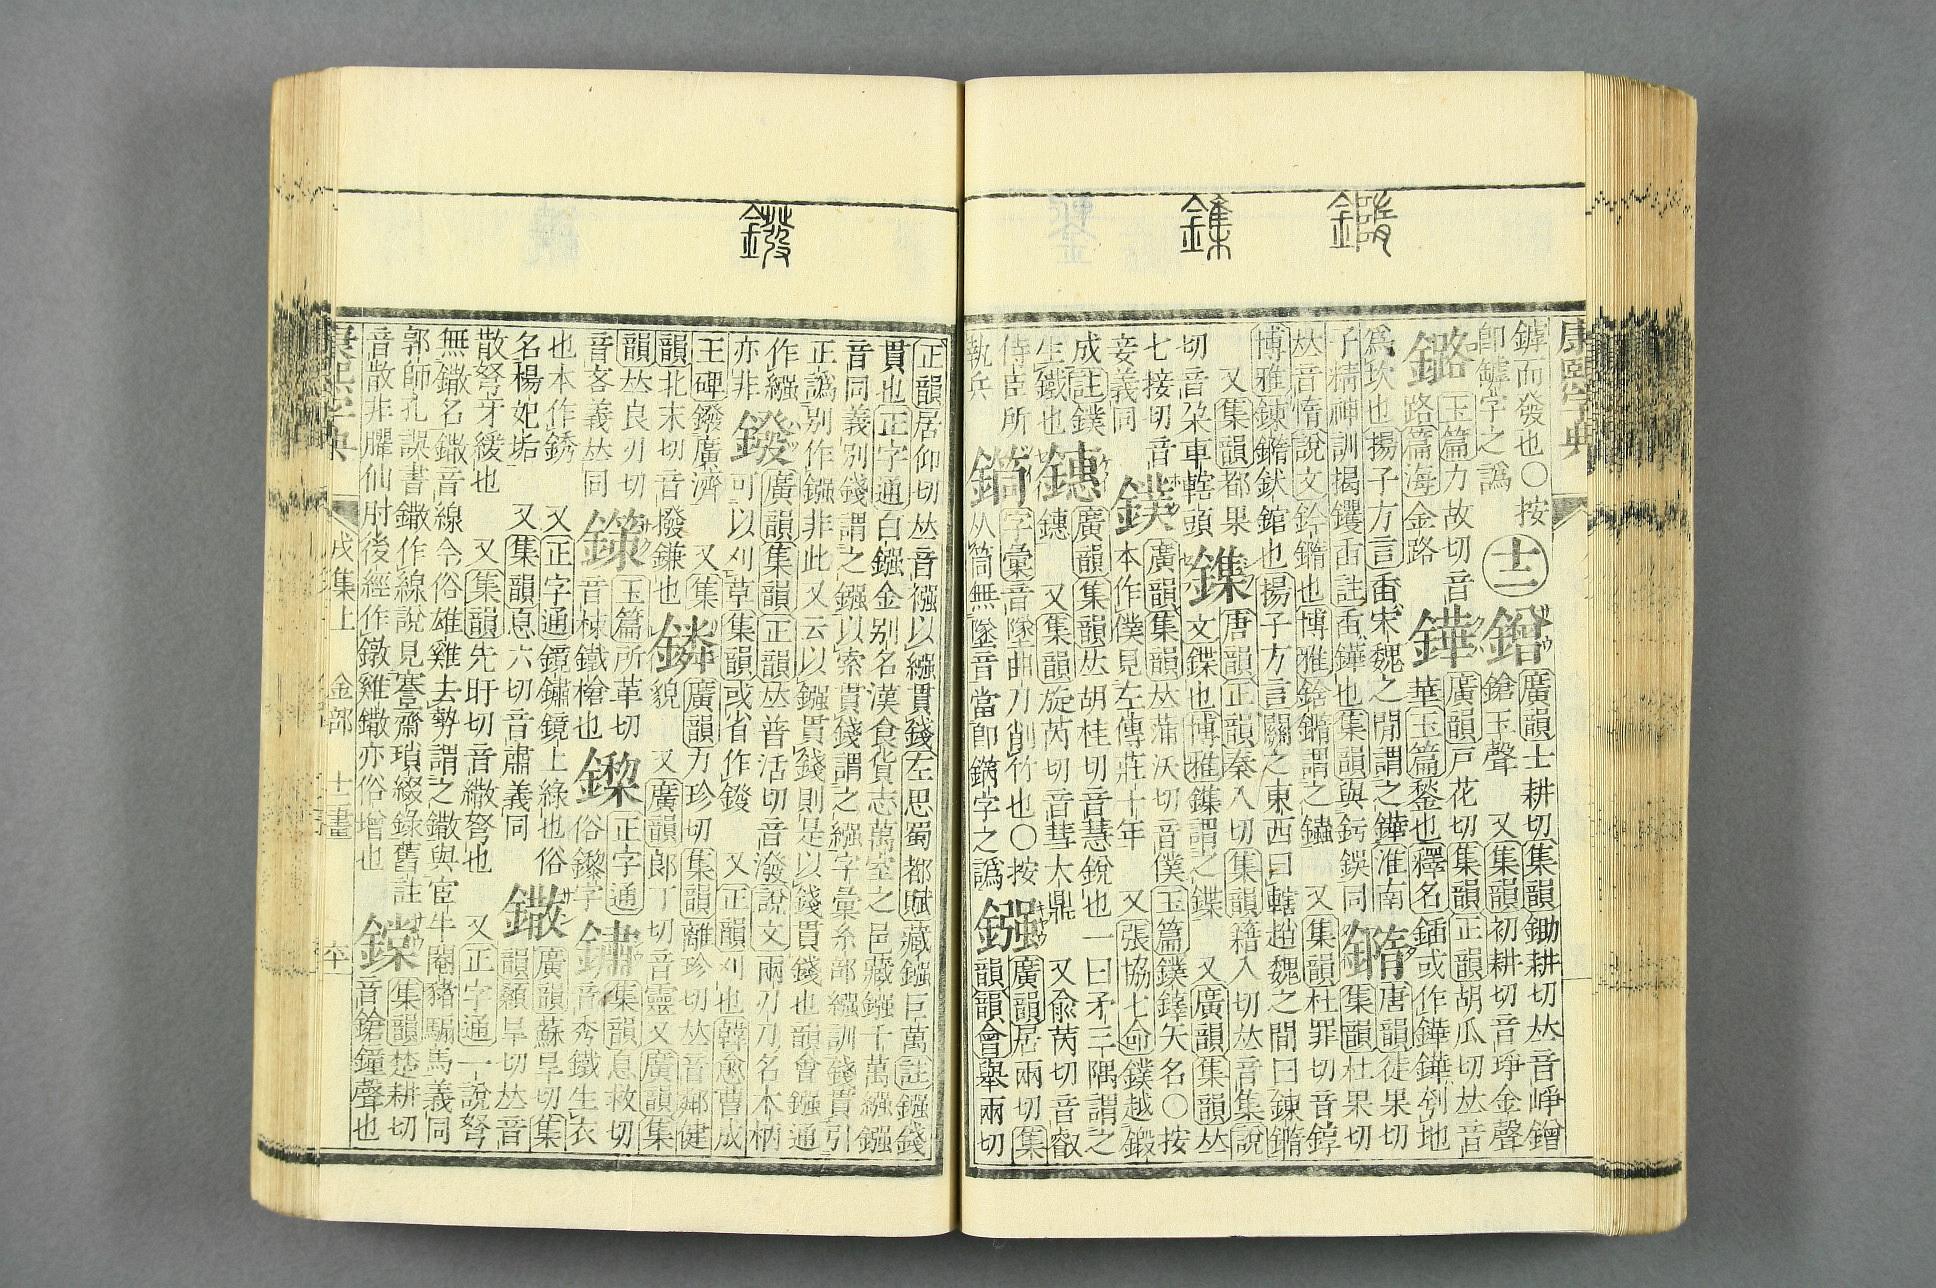 康熙字典
鏬而發也○按
卽罅字之譌
十二
鏳
廣韻士耕切集韻鋤耕切丛音崢鏳
鎗玉聲 又集韻初耕切音琤金聲
鏴
玉篇力故切音
路篇海金路
鏵
廣韻戸花切集韻正韻胡瓜切丛音
華玉篇鍫也釋名鍤或作鏵鏵刳地
爲坎也揚子方言臿宋魏之閒謂之鏵淮南
子精神訓揭钁臿註臿鏵也集韻與釫鋘同
䥺
唐韻徒果切
集韻杜果切
丛音惰說文鈐䥺也博雅鈐䥺謂之 又集韻杜罪切音錞
博雅錬䥺釱錧也揚子方言關之東西曰轄趙魏之閒曰錬䥺
又集韻都果
切音朶車轄頭
鏶
唐韻正韻秦入切集韻籍入切丛音集說
文鍱也博雅鏶謂之鍱 又廣韻集韻丛
七接切音
妾義同
鏷
廣韻集韻丛蒲沃切音僕玉篇鏷鋂矢名○按
本作僕見左傳莊十年 又張協七命鏷越鍛
成註鏷
生鐵也
鏸
廣韻集韻丛胡桂切音慧銳也一曰矛三隅謂之
鏸 又集韻旋芮切音彗大鼎 又俞芮切音叡
侍臣所
執兵
字彙音墜曲刀削竹也○按
从筒無墜音當卽 字之譌
鏹
廣韻居兩切集
韻韻會舉兩切
正韻居仰切丛音襁以繦貫錢左思蜀都賦藏鏹巨萬註鏹錢
貫也正字通白鏹金別名漢食貨志萬室之邑藏鏹千萬繦鏹
音同義別錢謂之鏹以索貫錢謂之繦字彙糸部繦訓錢貫引
正譌別作鏹非此又云以鏹貫錢則是以錢貫錢也韻會鏹通
作繦
亦非
鏺
廣韻集韻正韻丛普活切音潑說文兩刃刀名木柄
可以刈草集韻或省作鏺 又正韻刈也韓愈曹成
王碑鏺廣濟 又集
韻北末切音撥鎌也
鏻
廣韻力珍切集韻離珍切丛音鄰健
貌 又廣韻郎丁切音靈又廣韻集
韻丛良刃切
音吝義丛同
鏼
玉篇所革切
音棟鐵槍也
鏫
正字通
俗鑗字
鏽
集韻息救切
音秀鐵生衣
也本作銹 又正字通鏡鏽鏡上綠也俗
名楊妃垢 又集韻息六切音肅義同
鏾
廣韻蘇旱切集
韻顙旱切丛音
散弩牙緩也 又集韻先旰切音繖弩也 又正字通一說弩
無鏾名鏾音線今俗雄雞去勢謂之鏾與宦牛閹豬騸馬義同
郭師孔誤書鏾作線說見蹇齋瑣綴錄舊註
音散非臞仙肘後經作鐓雞鏾亦俗增也
鏿
集韻楚耕切
音鎗鐘聲也
康熙字典
戌集上
金部
十二畫